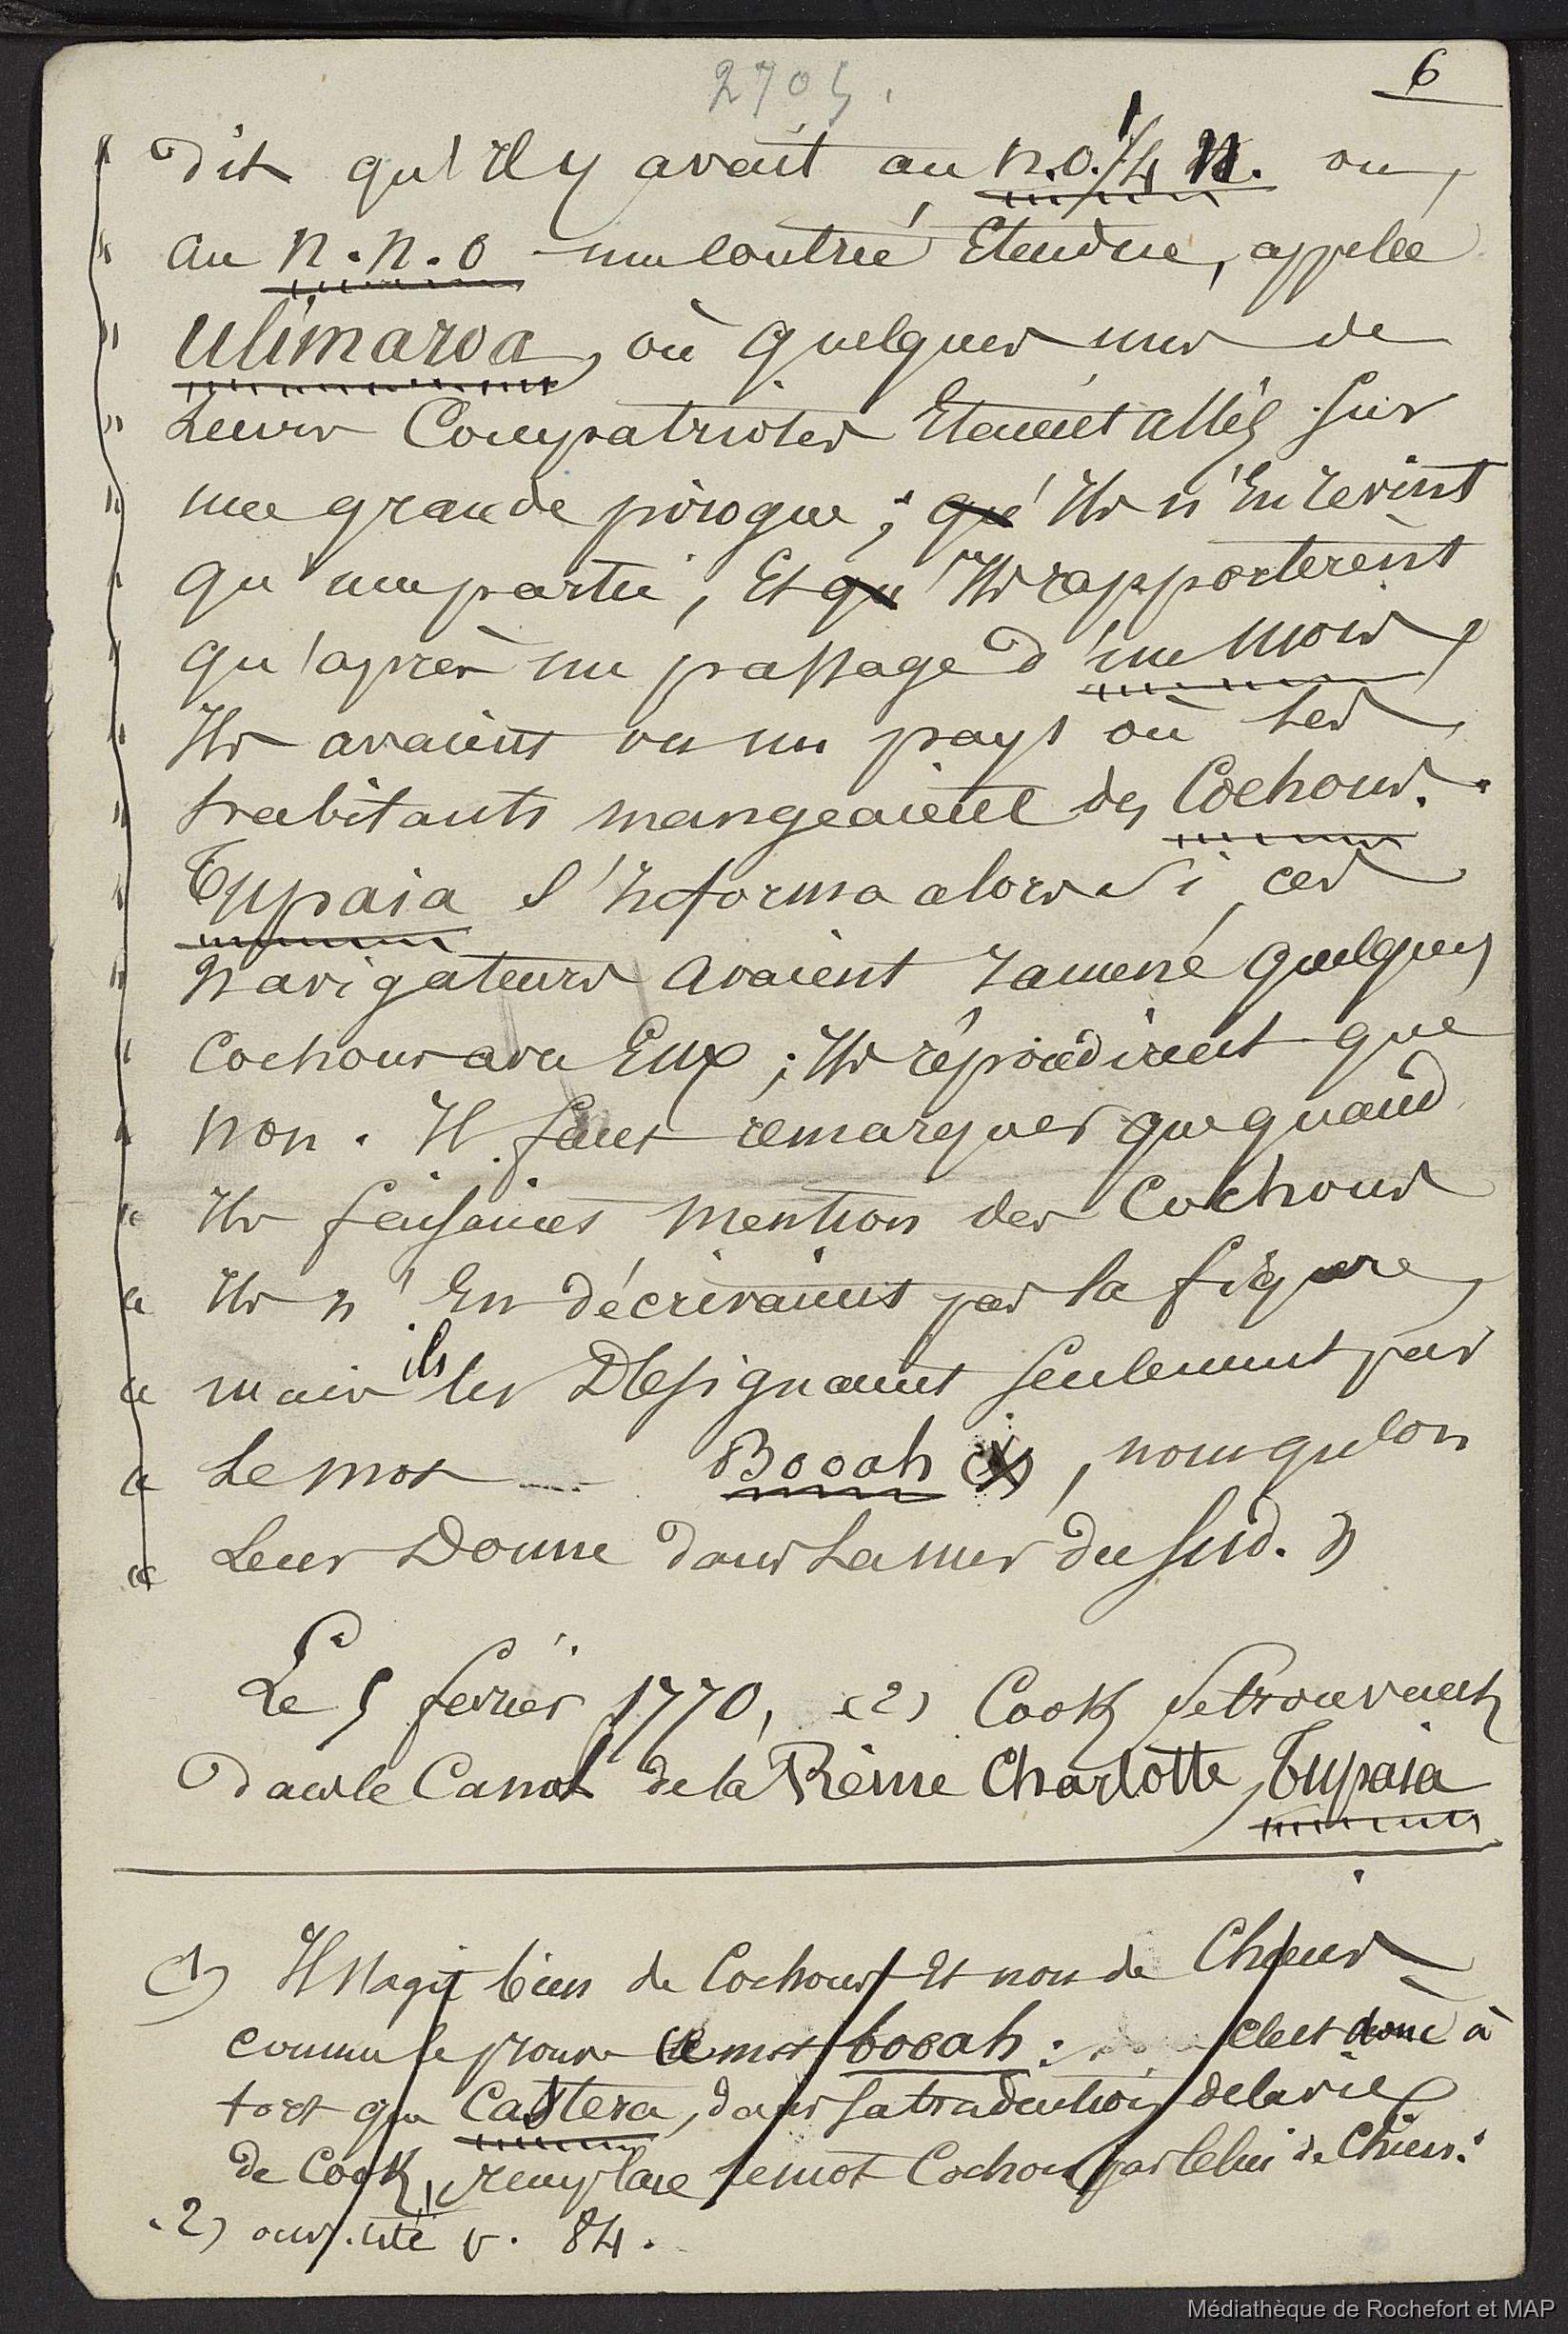 2705.
6
" dit qu'il y avait au N.O. 1/4 N. ou,
" au N.N.O une contrée Etendue, appelée
" Ulimaroa, où quelques uns de
" leurs Compatriotes Etaient allés sur
" une grande pirogue ; qu' Ils n'En revint
" qu'une partie, Et qu' Ils rapportèrent
" qu'après un passage d'un mois,
" Ils avaient vu un pays où les
" habitants mangeaient des Cochons.
" Tupaia s'Informa alors si ces
" Navigateurs avaient ramené quelques
" Cochons avec Eux ; Ils répondirent que
" non. Il faut remarquer que quand
" Ils faisaient mention des Cochons
" Ils n'En décrivaient pas la figure,
" mais ils les Désignaient seulement par
" Le mot Booah (1), nom qu'on
" Leur Donne dans la mer du Sud. »
Le 5 février 1770, (2) Cook se trouvant
Dans le Canal de la Reine Charlotte, Tupaia
(1) Il s'agit bien de Cochons Et non de Chiens
comme le prouve le mot booah : c'est donc à
tort que Castera, dans sa traduction de la vie
de Cook, remplace le mot Cochon par celui de Chien.
(2) ouv. cité p. 84.
Médiathèque de Rochefort et MAP